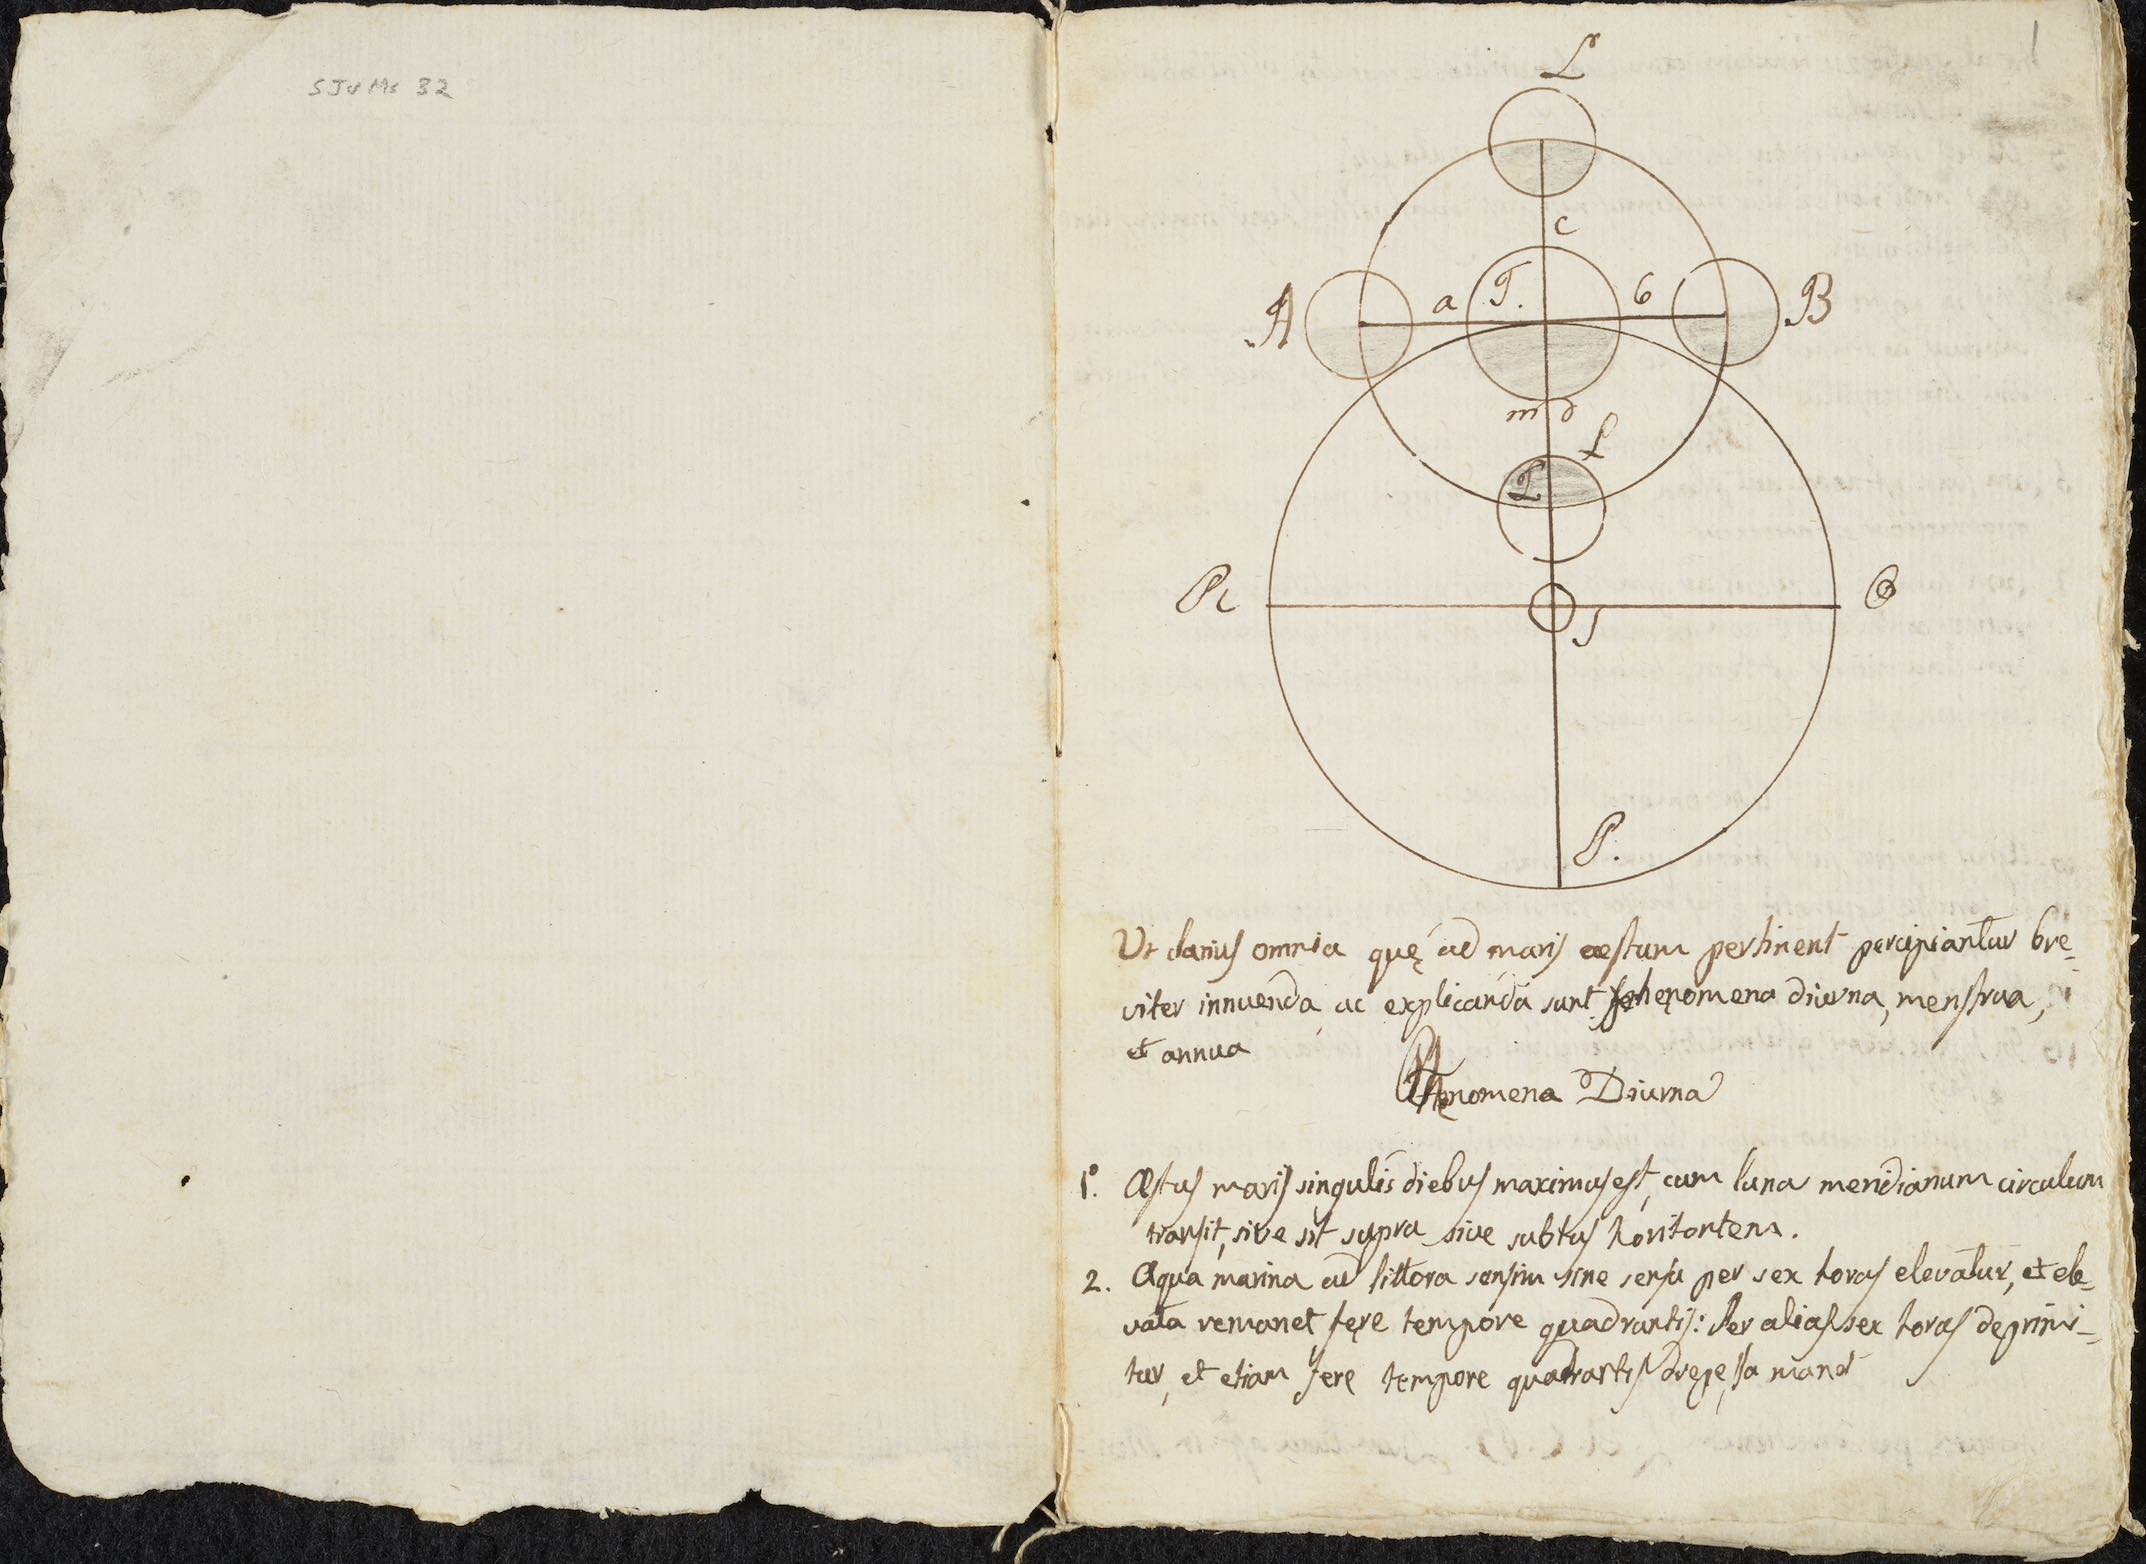 SJU Ms 32
1
L
c
A a T. b B
m d
L
L
R Q
S
P.
Ut clarius omnia quę ad maris æstum pertinent percipiantur bre-
viter innuenda, ac explicanda sunt phęnomena diurna, menstrua,
et annua
Phęnomena Diurna
1º. Æstus maris singulis diebus maximus est, cum luna meridianum circulum
transit, sive sit supra sive subtus horitontem.
2. Aqua marina ad littora sensim sine sensu per sex horas elevatur, et ele-
vata remanet fęre tempore quadrantis: Per alias sex horas deprimi-
tur, et etiam ferę tempore quadrantis depressa manet